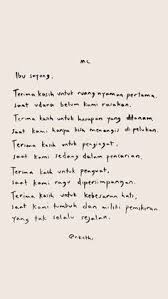 Ibu sayang,
Terima kasih untuk ruang nyaman pertama.
Saat udara belum kami rasakan.
Terima kasih untuk harapan yang ditanam
Saat kami hanya bisa menangis di pelukan.
Terima kasih untuk pengingat,
saat kami sedang dalam pencarian.
Terima kasih untuk penguat,
saat kami ragu dipersimpangan.
Terima kasih untuk kebesaran hati,
saat kami tumbuh dan miliki pemikiran
yang tak selalu sejalan.